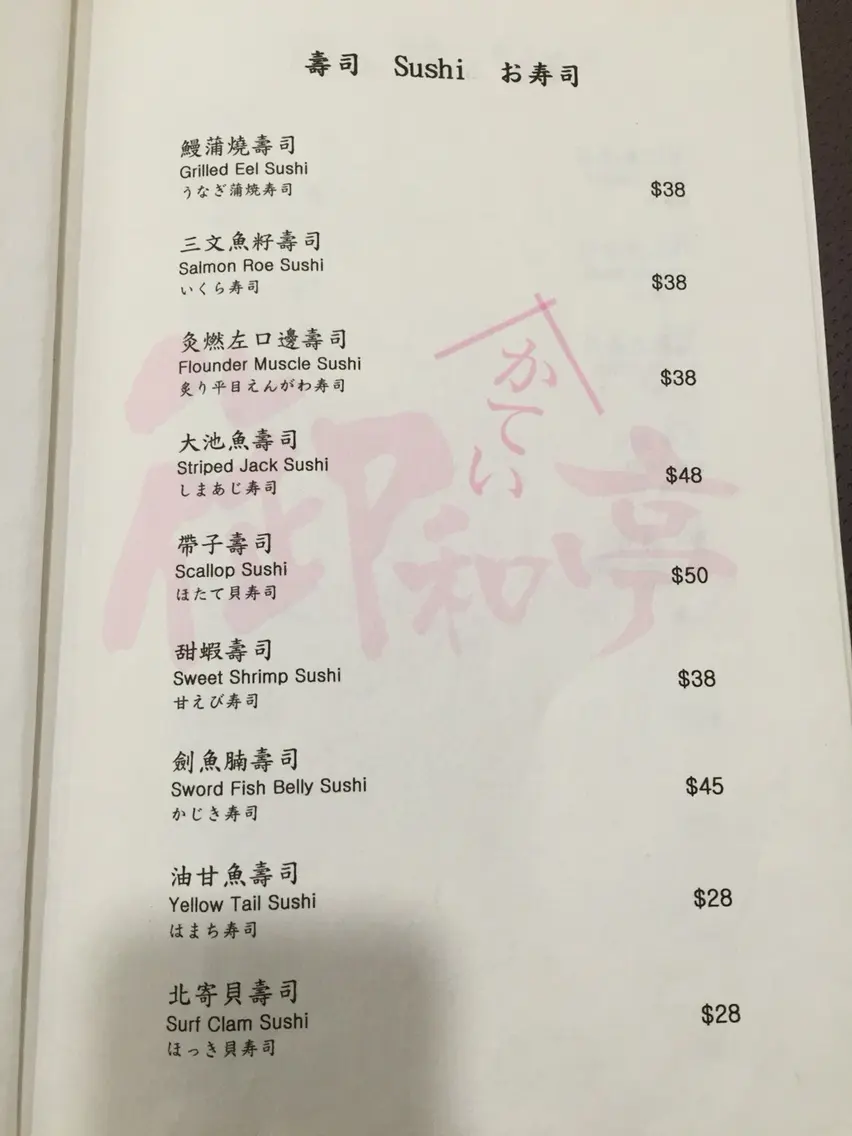 壽司 Sushi お寿司
鰻蒲燒壽司
Grilled Eel Sushi
うなぎ蒲焼寿司
$38
三文魚籽壽司
Salmon Roe Sushi
いくら寿司
$38
灸燃左口邊壽司
Flounder Muscle Sushi
炙り平目えんがわ寿司
$38
大池魚壽司
Striped Jack Sushi
しまあじ寿司
$48
帶子壽司
Scallop Sushi
ほたて貝寿司
$50
甜蝦壽司
Sweet Shrimp Sushi
甘えび寿司
$38
劍魚腩壽司
Sword Fish Belly Sushi
かじき寿司
$45
油甘魚壽司
Yellow Tail Sushi
はまち寿司
$28
北寄貝壽司
Surf Clam Sushi
ほっき貝寿司
$28
かてい
御和亭